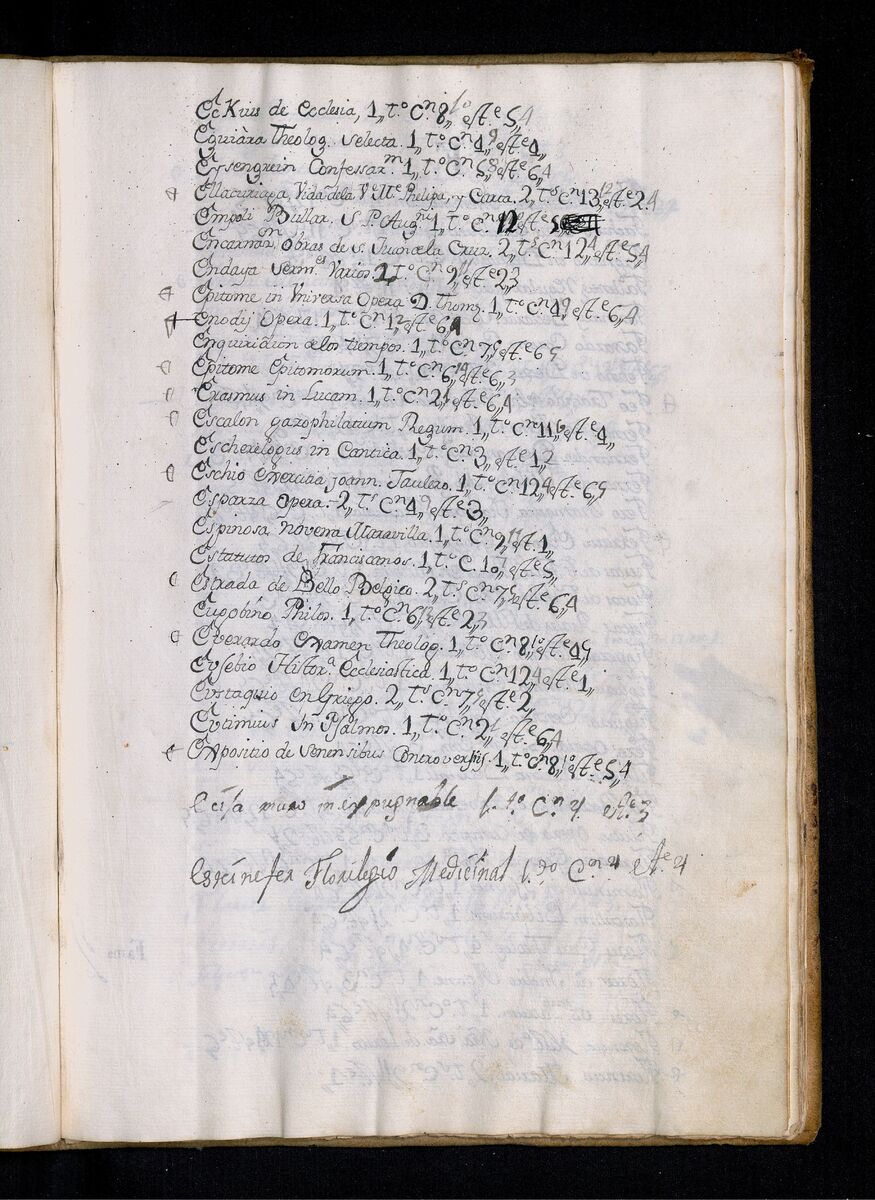 Eckius de Ecclesia, 1,, t.º C.n 8,, est.e 5,, 4
Eguiàra Theolog. selecta. 1,, t.º C.n 4,, est.e 4,,
Eysengrein Confessar.m 1,, t.º C.n 5,, est.e 6,, 4
Vida de la V.e M.e Phelipa, y Carta. 2,, t.s C.n 13,, est.e 2. 4
Empoli Bullar. S. P. Aug.ni 1,, t.º C.n 12 est.e 5
Encarnaz.on obras de S. Juan de la Cruz. 2,, t.s C.n 12,, est.e 5,, 4
Endaya Serm.es Varios. 1,, t.º C.n 9,, est.e 2,, 3
Epitome in Vniversa Opera D. Thom. 1,, t.º C.n 4,, est.e 6,, 4
Enodij Opera. 1,, t.º C.n 12 est.e 6,, 4
Enquiridion de los tiempos. 1,, t.º C.n 7,, est.e 6 5
Epitome Epitomorum. 1,, t.º C.n 6,, est.e 6,, 3
Erasmus in Lucam. 1,, t.º C.n 2,, est.e 6,, 4
Escalon gazophilatium Regum. 1,, t.º C.n 11,, est.e 4,,
Escherelogus in Cantica. 1,, t.º C.n 3,, est.e 1,, 2
Eschio Exercitia Joann. Taulero. 1,, t.º C.n 12,, est.e 6,, 5
Esparza Opera. 2,, t.s C.n 4,, est.e 3,,
Espinosa novena Maravilla. 1,, t.º C.n 9,, est.e 1,,
Estatutos de Franciscanos. 1,, t.º C. 10,, est.e 5,,
Estrada de Bello Belgico. 2,, t.s C.n 7,, est.e 6,, 4
Eugobino Philos. 1,, t.º C.n 6,, est.e 2,, 3
Everardo Examen Theolog. 1,, t.º C.n 8,, est.e 4,,
Eusebio Histor.a Ecclesiastica. 1,, t.º C.n 12,, est.e 1,,
Eustaquio en Griego. 2,, t.s C.n 7,, est.e 2,,
Eutimius in Psalmos. 1,, t.º C.n 2,, est.e 6,, 4
Expositio de Senensibus Controversijs. 1,, t.º C.n 8,, est.e 5,, 4
muro inexpugnable 1. tº C.n 4. est.e 3
Esteinefer Florilegio Medicinal 1. tº C.n 4 est.e 4